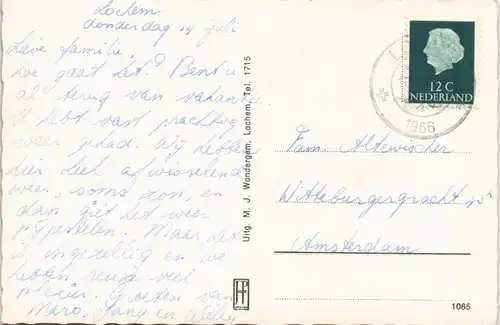 Lochem
donderdag 14 juli
Lieve familie,
hoe gaat het? Bent u
al terug van vakantie
U hebt vast prachtig
weer gehad. Wij hebben
hier heel afwisselend
weer, soms zon, en
dan giet het weer
pijpestelen. Maar het
is ongezellig en we
hebben reuze veel
plezier. Groeten van
Maro, Jany en
Uitg. M. J. Wondergem, Lochem, Tel. 1715
12 C
NEDERLAND
1966
Fam. Altewischer
Wittenburgergracht
Amsterdam
1065